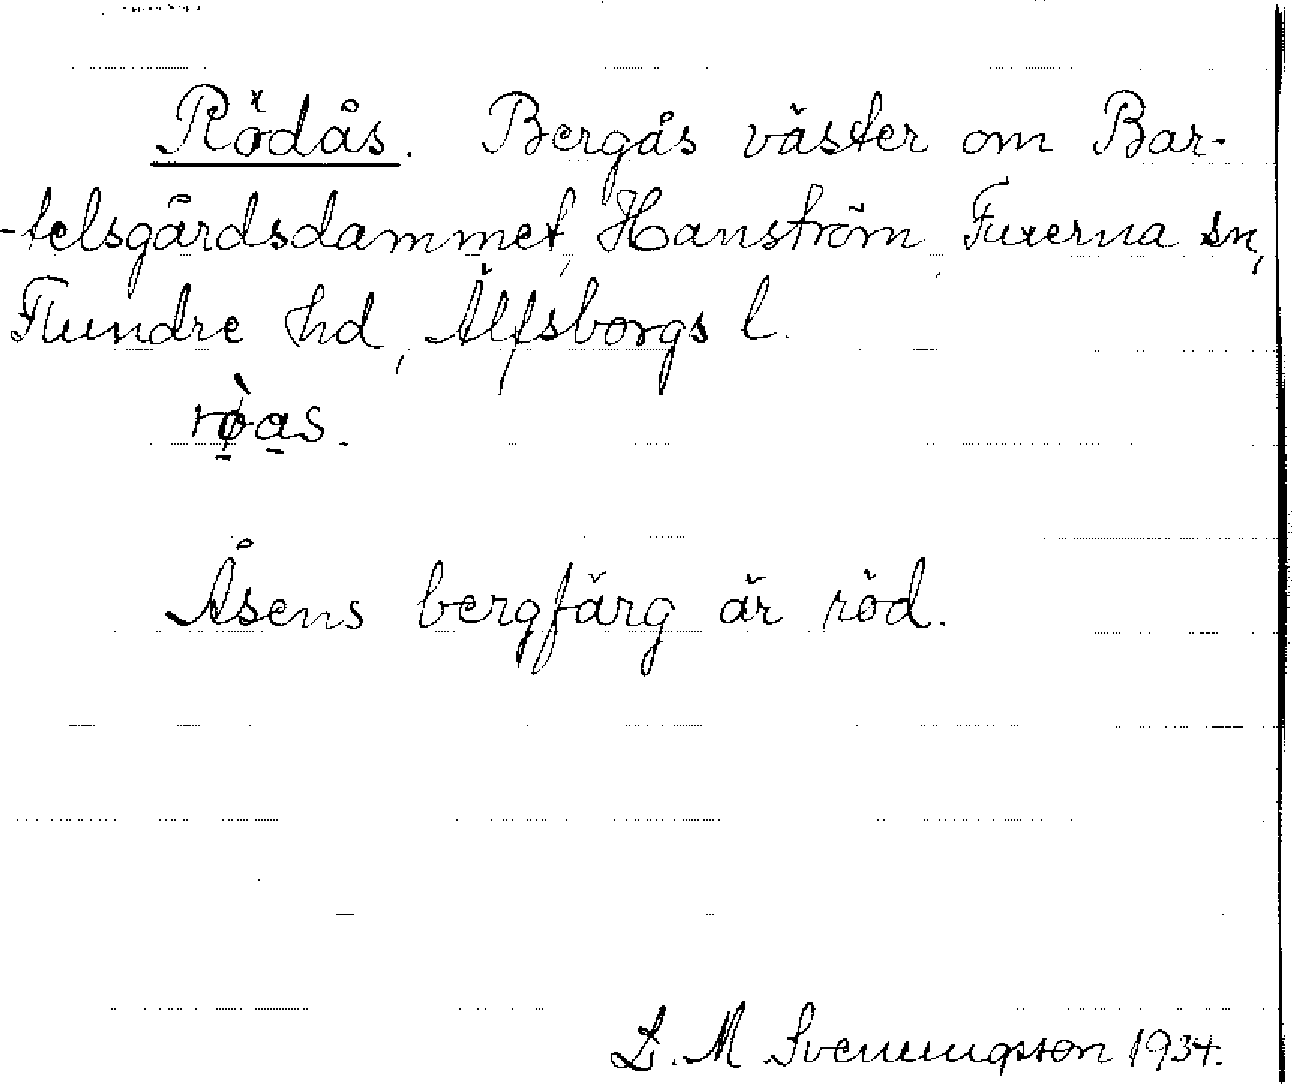 Rödås. Bergås väster om Bar-
-telsgårdsdammet, Hanström, Fuxerna sn,
Flundre hd, Älfsborgs l.
rø̀as.
Åsens bergfärg är röd.
D. M Svenungsson 1934.